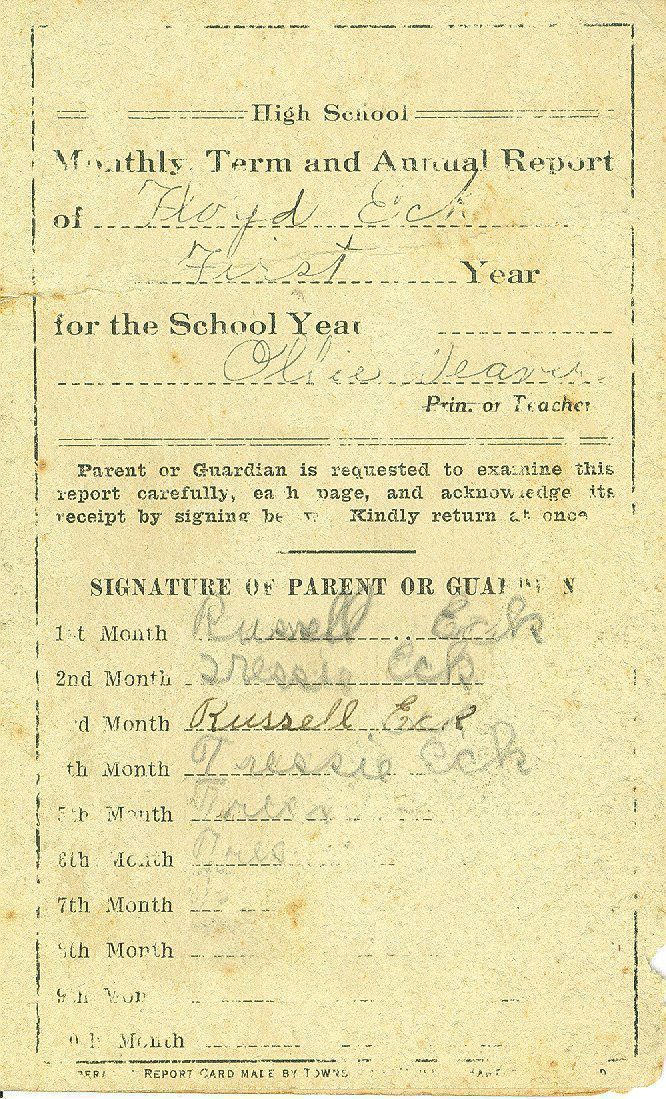 High School
Monthly, Term and Annual Report
of Floyd Eck
First Year
for the School Year
Ollie
Prin. or Teacher
Parent or Guardian is requested to examine this
report carefully, each page, and acknowledge its
receipt by signing below. Kindly return at once
SIGNATURE OF PARENT OR GUARDIAN
1st Month Russell Eck
2nd Month Tressie Eck
3rd Month Russell Eck
4th Month Tressie Eck
5th Month
6th Month
7th Month
8th Month
9th Month
10th Month
REPORT CARD MADE BY